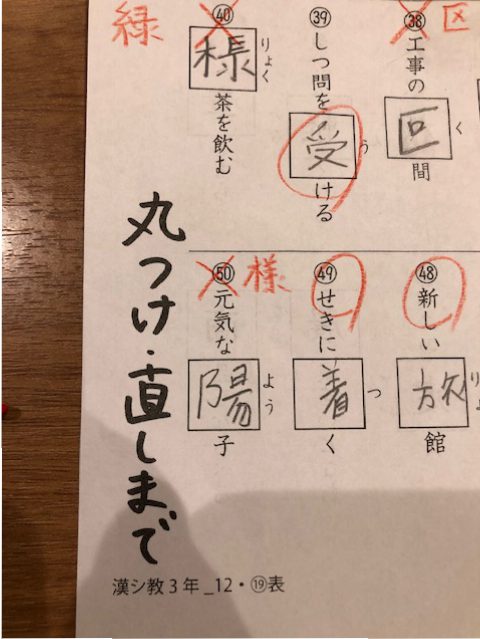 区
㊳工事の
く
間
㊴しつ問を受ける
う
㊵様茶を飲む
りょく
緑
㊽新しい旅館
りょ
㊾せきに着く
つ
㊿元気な陽子
よう
様
丸つけ・直しまで
漢シ教3年_12・⑲表